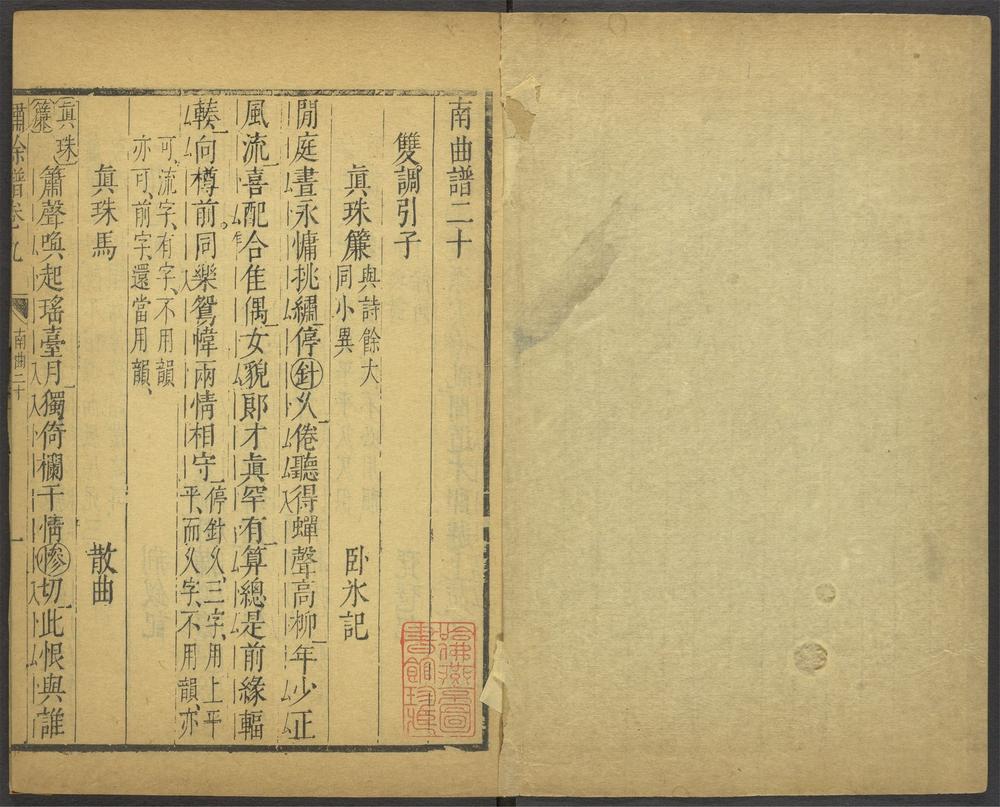 南曲譜二十
雙調引子
眞珠簾
與詩餘大
同小異
卧氷記
閒庭晝永慵挑繡停針久倦聽得蟬聲高柳年少正
風流喜配合隹偶女貌郎才眞罕有算總是前緣輻
輳向樽前同樂鴛幃兩情相守
停針久三字用上平
平而久字不用韻亦
可流字有字不用韻
亦可前字還當用韻
眞珠馬
散曲
眞珠
簾
簫聲喚起瑤臺月獨倚欄干情慘切此恨與誰
嘯餘譜卷九
南曲二十
一
哈佛燕京圖
書館珍藏